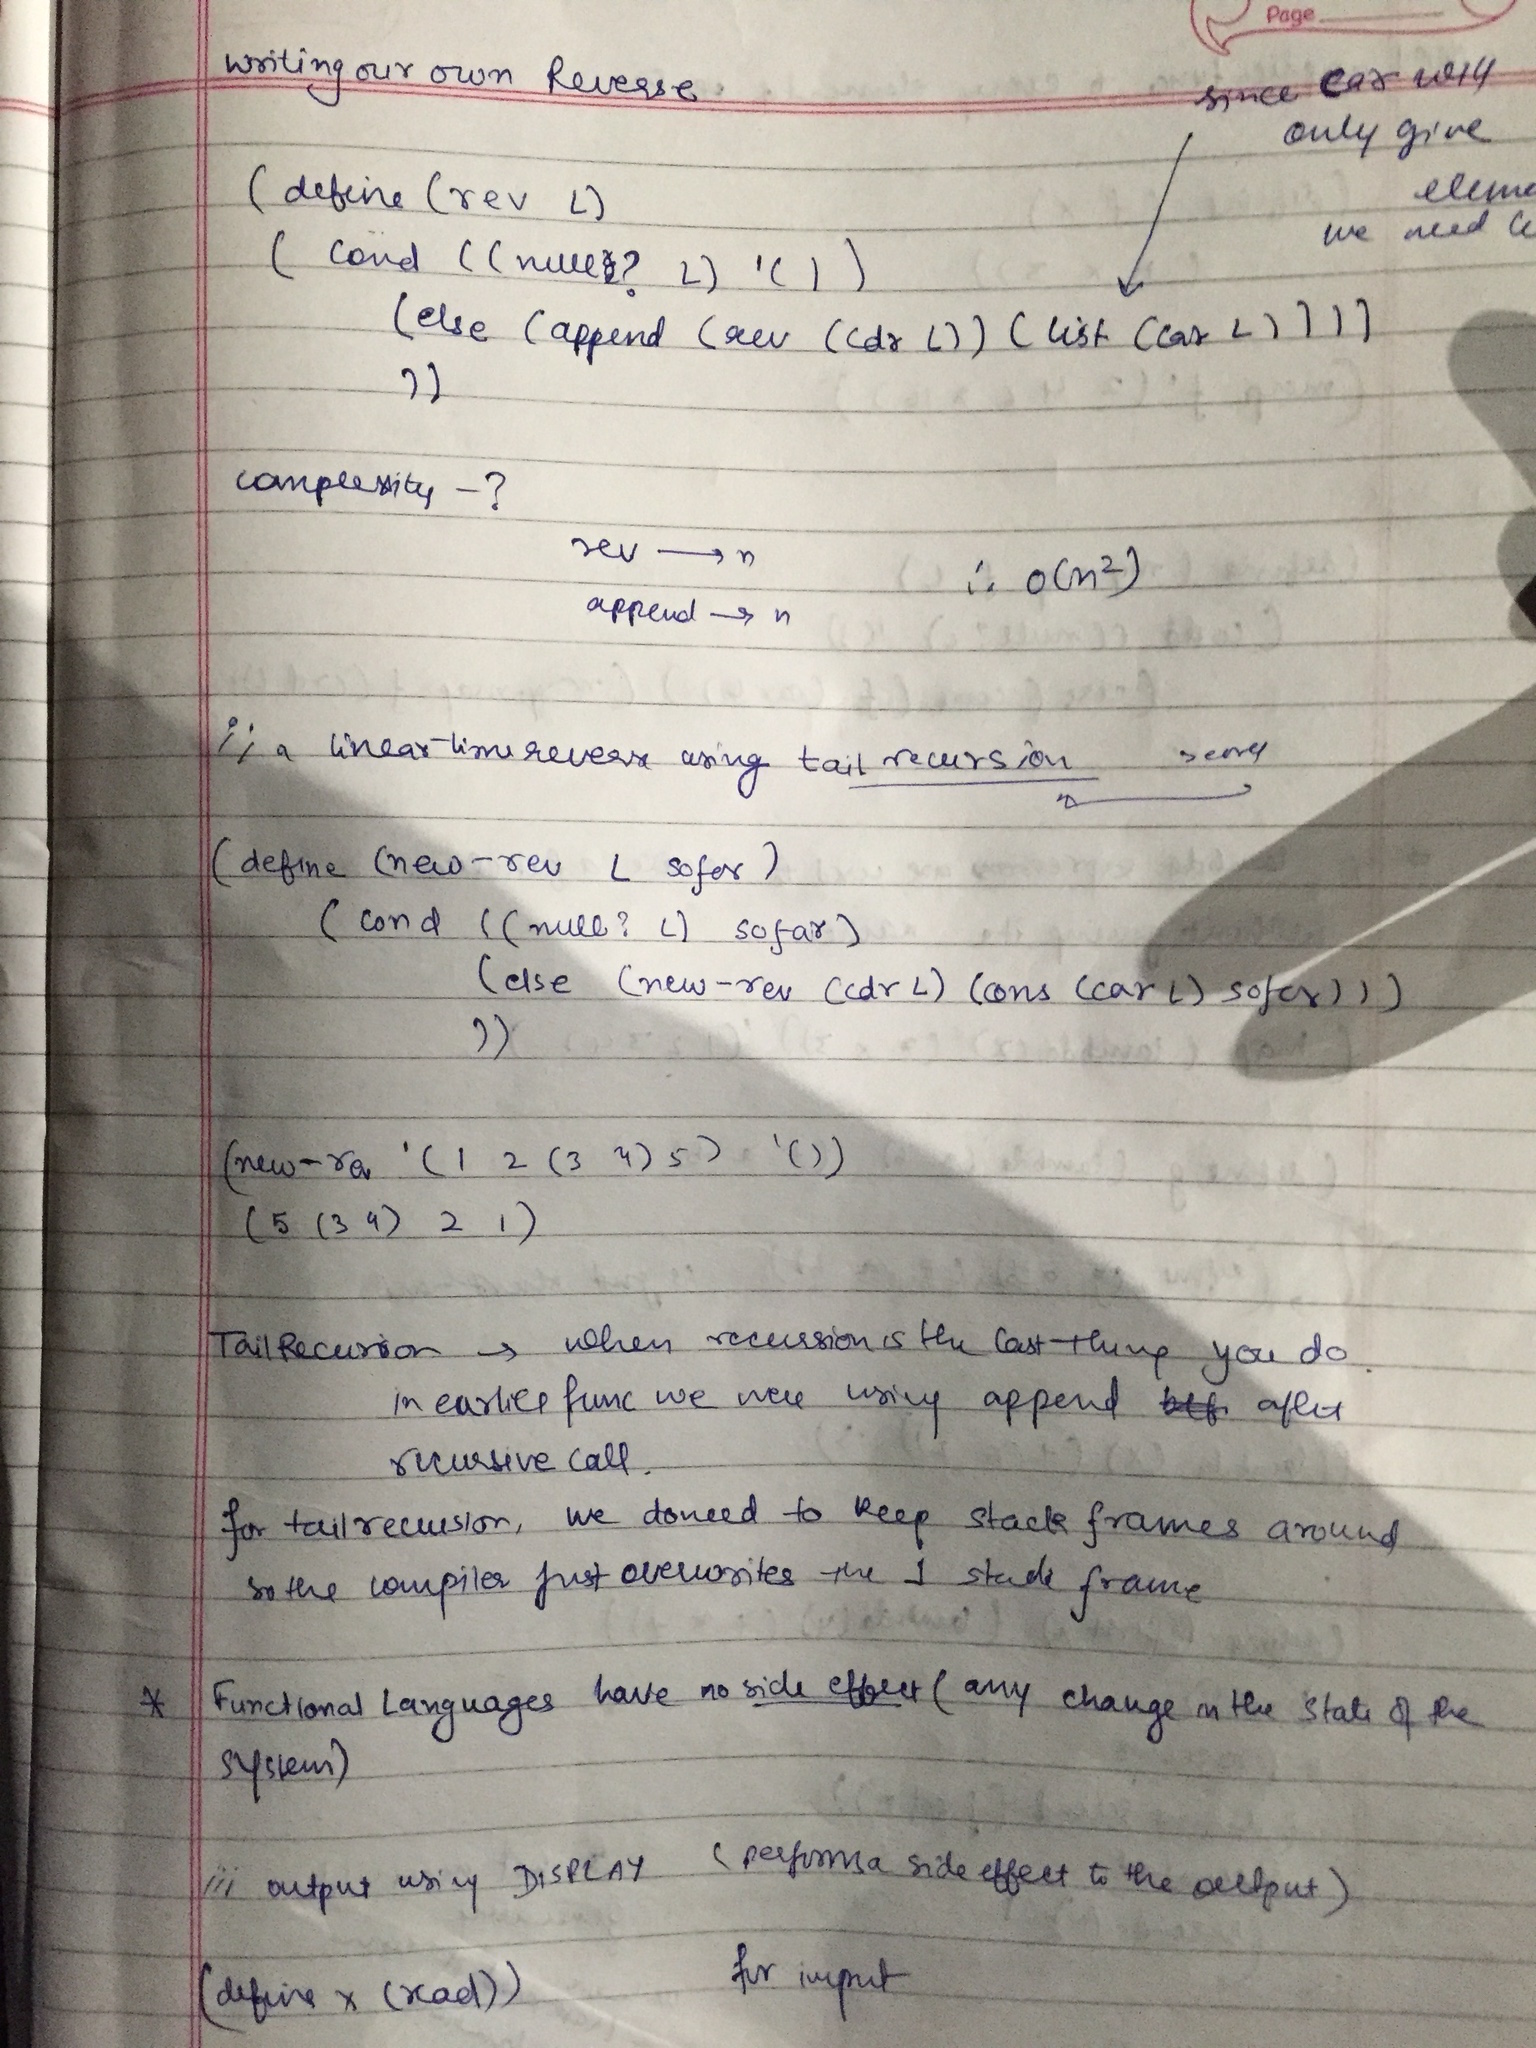 Page
writing our own Reverse
since car will
only give
eleme
we need
(define (rev L)
( cond ((null? L) '( ) )
(else (append (rev (cdr L)) ( list (car L) ) ) ) )
))
complexity - ?
rev → n
append → n
∴ O(n²)
;; a linear-time reverse using tail recursion
(define (new-rev L sofar)
( cond ((null? L) sofar)
(else (new-rev (cdr L) (cons (car L) sofar) ) )
))
(new-rev '( 1 2 (3 4) 5 ) '( ))
(5 (3 4) 2 1)
Tail Recursion → when recussion is the last thing you do.
in earlier func we were using append after
recursive call.
for tail recursion, we doneed to keep stack frames around
so the compiler just overwrites the 1 stack frame
* Functional Languages have no side effect ( any change in the state of the
system)
;;; output using DISPLAY ( performs a side effect to the output )
(define x (read)) for input